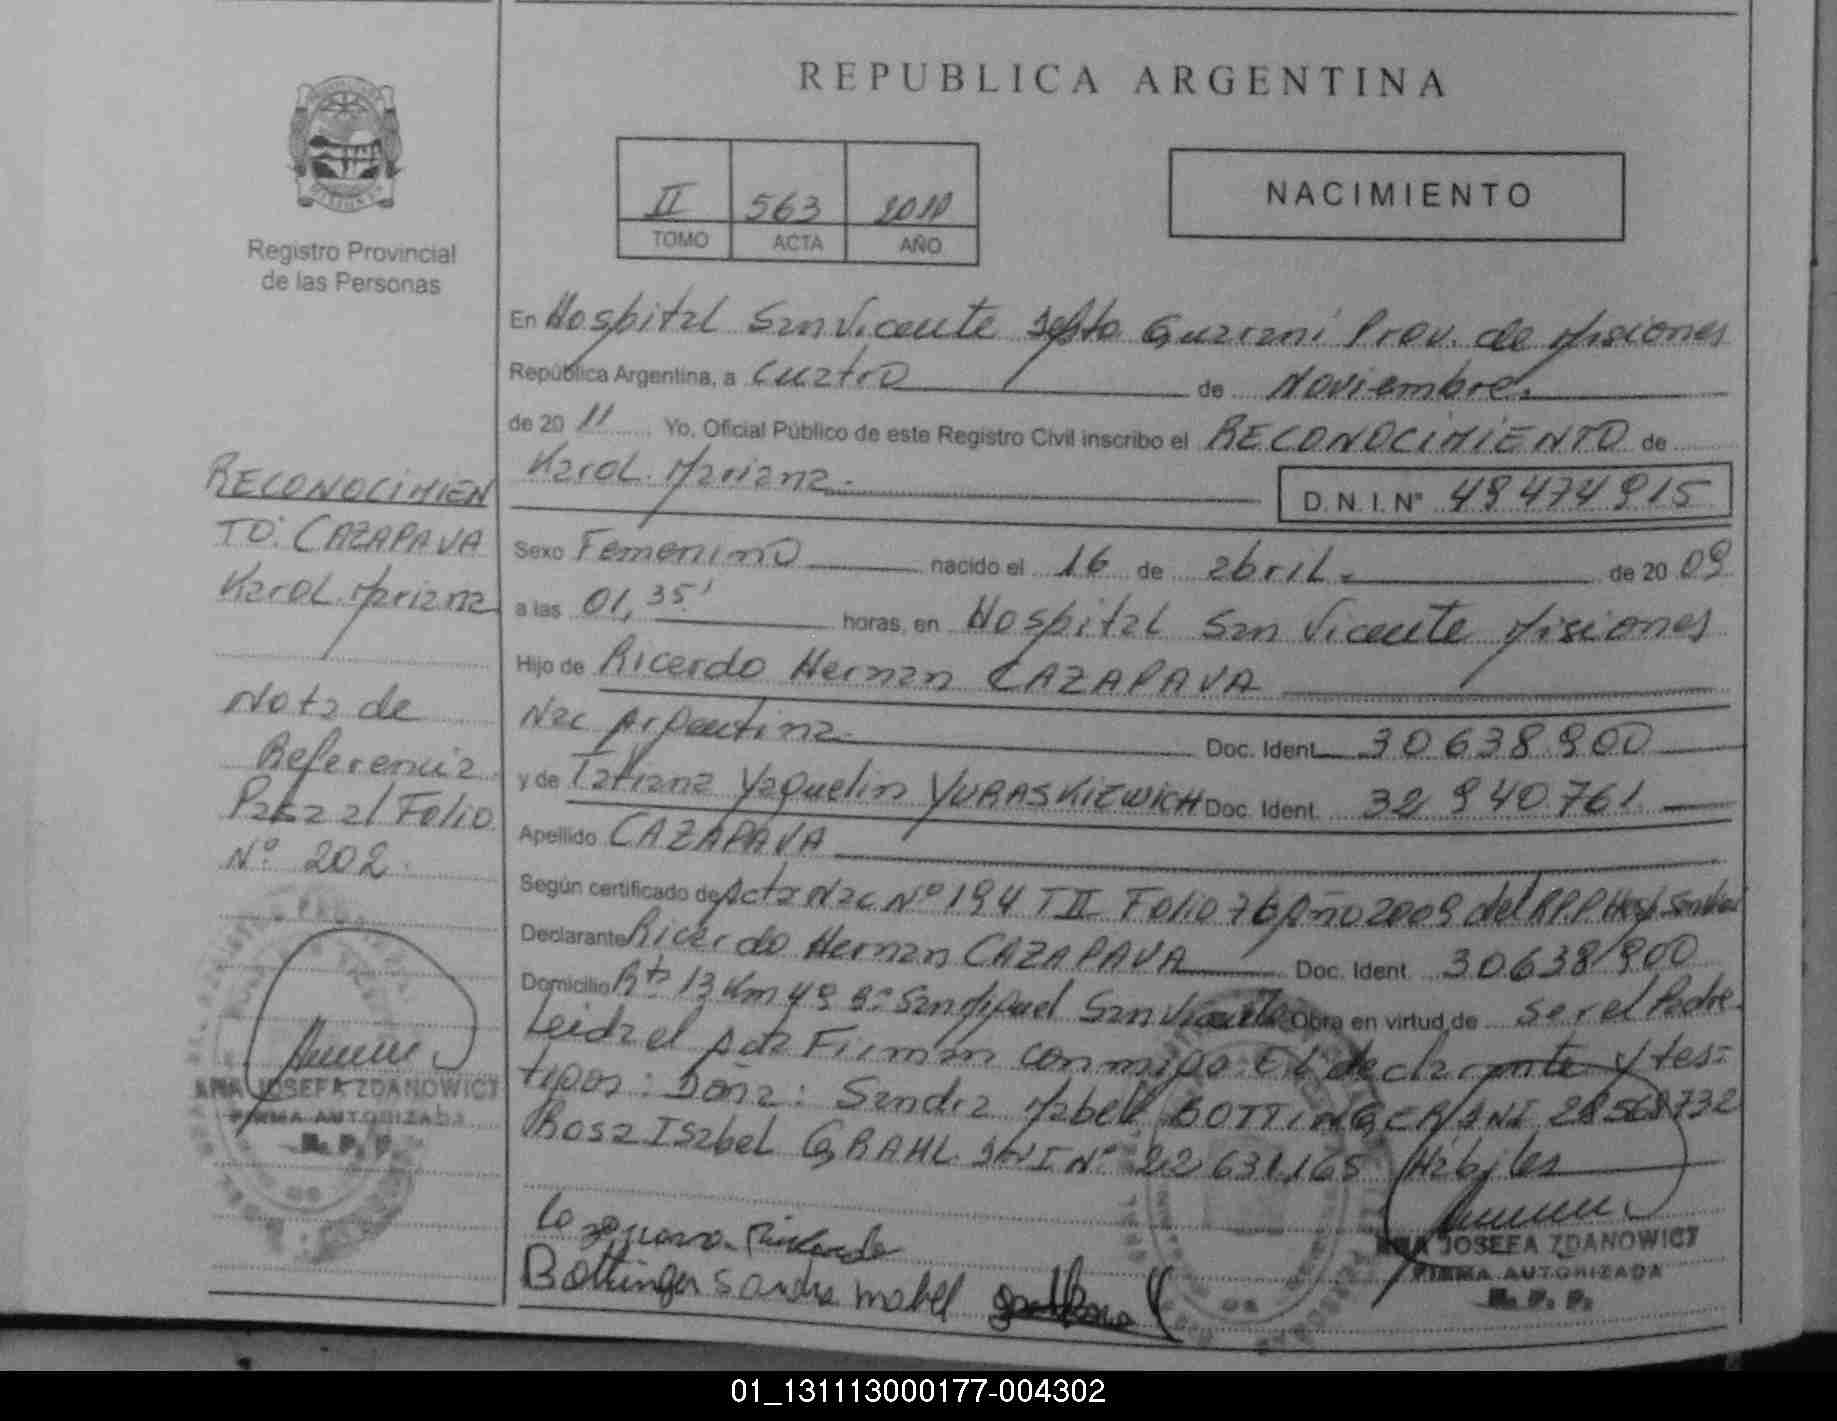 REPUBLICA ARGENTINA
NACIMIENTO
II 563
TOMO ACTA AÑO
Registro Provincial
de las Personas
En Hospital San Vicente Depto Guarani Prov. de Misiones
República Argentina, a cuatro de Noviembre.
de 20 11 Yo, Oficial Público de este Registro Civil inscribo el RECONOCIMIENTO de
Karol Mariana.
D. N. I. N° 49474915
Sexo Femenino nacido el 16 de abril. de 20 09
a las 01,35' horas, en Hospital San Vicente Misiones
Hijo de Ricardo Hernan CAZAPAVA
Nac Argentina. Doc. Ident. 30638900
y de Tatiana Yaquelin YURASKIEWICH Doc. Ident. 32940761
Apellido CAZAPAVA
Según certificado de Acta Nac N° 194 T II Folio 76 Año 2009 del RPP Hosp
Declarante Ricardo Hernan CAZAPAVA Doc. Ident. 30638900
Domicilio Rta 13 Km 49 B° San Miguel San Vicente Obra en virtud de ser el Padre
Leida el Acta Firman conmigo el declarante y tes=
tigos: Doña: Sandra Mabel BOTTINGER DNI 28568732
Rosa Isabel GRAHL DNI N° 22631,165 Habiles
RECONOCIMIEN
TO: CAZAPAVA
Karol Mariana
Nota de
Referencia
Pasa al Folio
N° 202.
ANA JOSEFA ZDANOWICZ
FIRMA AUTORIZADA
R. P. P.
Bottinger Sandra mabel
ANA JOSEFA ZDANOWICZ
FIRMA AUTORIZADA
R. P. P.
01_131113000177-004302